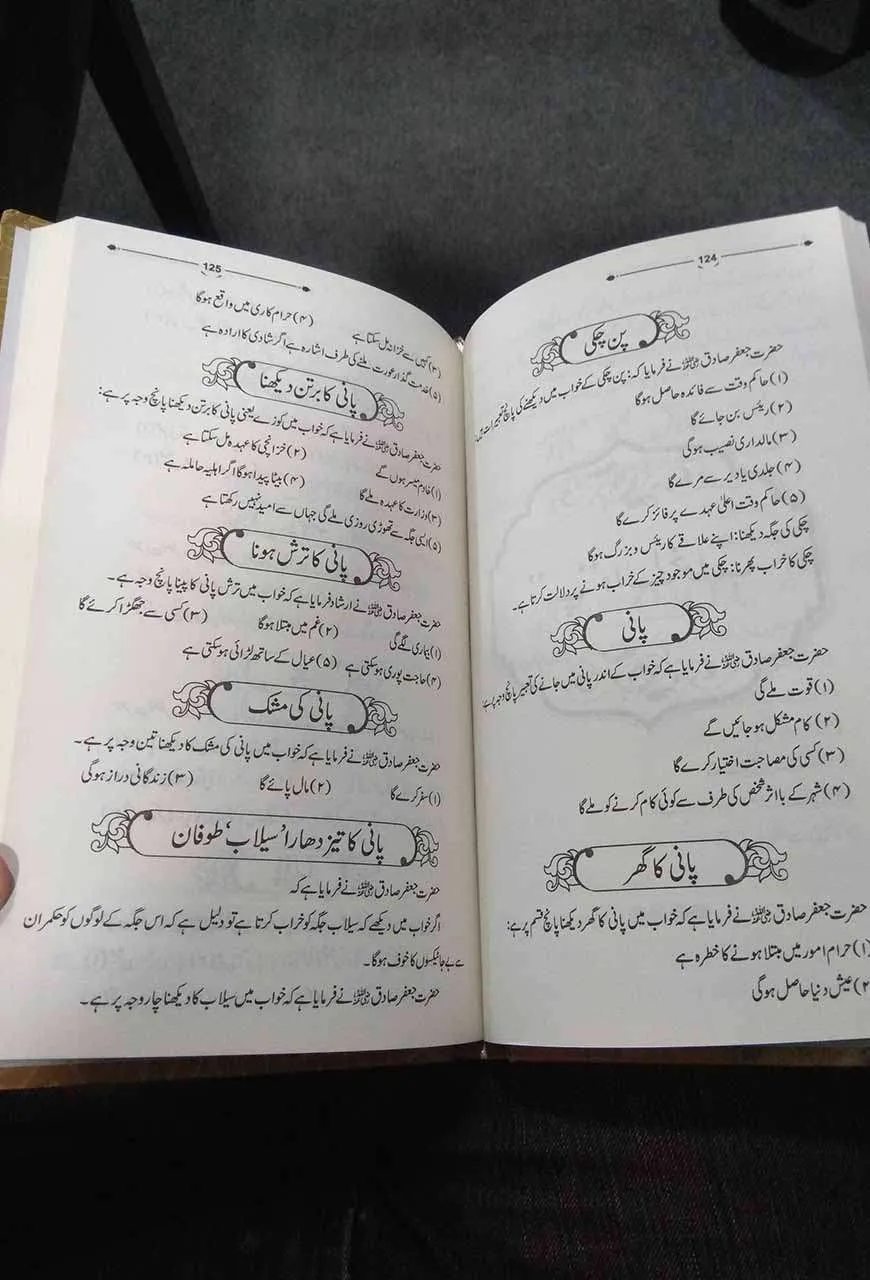 124
پن چکی
حضرت جعفر صادق رضی اللہ عنہ نے فرمایا کہ: پن چکی کے خواب میں دیکھنے کی پانچ تعبیرات ہیں:
(۱) حاکم وقت سے فائدہ حاصل ہوگا
(۲) رئیس بن جائے گا
(۳) مالداری نصیب ہوگی
(۴) جلدی یا دیر سے مرے گا
(۵) حاکم وقت اعلیٰ عہدے پر فائز کرے گا
چکی کی جگہ دیکھنا: اپنے علاقے کا رئیس و بزرگ ہوگا
چکی کا خراب پھرنا: چکی میں موجود چیز کے خراب ہونے پر دلالت کرتا ہے۔
پانی
حضرت جعفر صادق رضی اللہ عنہ نے فرمایا ہے کہ خواب کے اندر پانی میں جانے کی تعبیر پانچ وجہ پر ہے:
(۱) قوت ملے گی
(۲) کام مشکل ہو جائیں گے
(۳) کسی کی مصاحبت اختیار کرے گا
(۴) شہر کے بااثر شخص کی طرف سے کوئی کام کرنے کو ملے گا
پانی کا گھر
حضرت جعفر صادق رضی اللہ عنہ نے فرمایا ہے کہ خواب میں پانی کا گھر دیکھنا پانچ قسم پر ہے:
(۱) حرام امور میں مبتلا ہونے کا خطرہ ہے
(۲) عیش دنیا حاصل ہوگی
125
(۳) کہیں سے خزانہ مل سکتا ہے (۴) حرام کاری میں واقع ہوگا
(۵) خدمت گذار عورت ملنے کی طرف اشارہ ہے اگر شادی کا ارادہ ہے
پانی کا برتن دیکھنا
حضرت جعفر صادق رضی اللہ عنہ نے فرمایا ہے کہ خواب میں کوزے یعنی پانی کا برتن دیکھنا پانچ وجہ پر ہے:
(۱) خادم میسر ہوں گے (۲) خزانچی کا عہدہ مل سکتا ہے
(۳) وزارت کا عہدہ ملے گا (۴) بیٹا پیدا ہوگا اگر اہلیہ حاملہ ہے
(۵) ایسی جگہ سے تھوڑی روزی ملے گی جہاں سے امید نہیں رکھتا ہے
پانی کا ترش ہونا
حضرت جعفر صادق رضی اللہ عنہ نے ارشاد فرمایا ہے کہ خواب میں ترش پانی کا پینا پانچ وجہ ہے۔
(۱) بیماری لگے گی (۲) غم میں مبتلا ہوگا (۳) کسی سے جھگڑا کرے گا
(۴) حاجت پوری ہو سکتی ہے (۵) عیال کے ساتھ لڑائی ہو سکتی ہے
پانی کی مشک
حضرت جعفر صادق رضی اللہ عنہ نے فرمایا ہے کہ خواب میں پانی کی مشک کا دیکھنا تین وجہ پر ہے۔
(۱) سفر کرے گا (۲) مال پائے گا (۳) زندگانی دراز ہوگی
پانی کا تیز دھارا، سیلاب، طوفان
حضرت جعفر صادق رضی اللہ عنہ نے فرمایا ہے کہ
اگر خواب میں دیکھے کہ سیلاب جگہ کو خراب کرتا ہے تو دلیل ہے کہ اس جگہ کے لوگوں کو حکمران
سے بے جا ٹیکسوں کا خوف ہوگا۔
حضرت جعفر صادق رضی اللہ عنہ نے فرمایا ہے کہ خواب میں سیلاب کا دیکھنا چار وجہ پر ہے۔